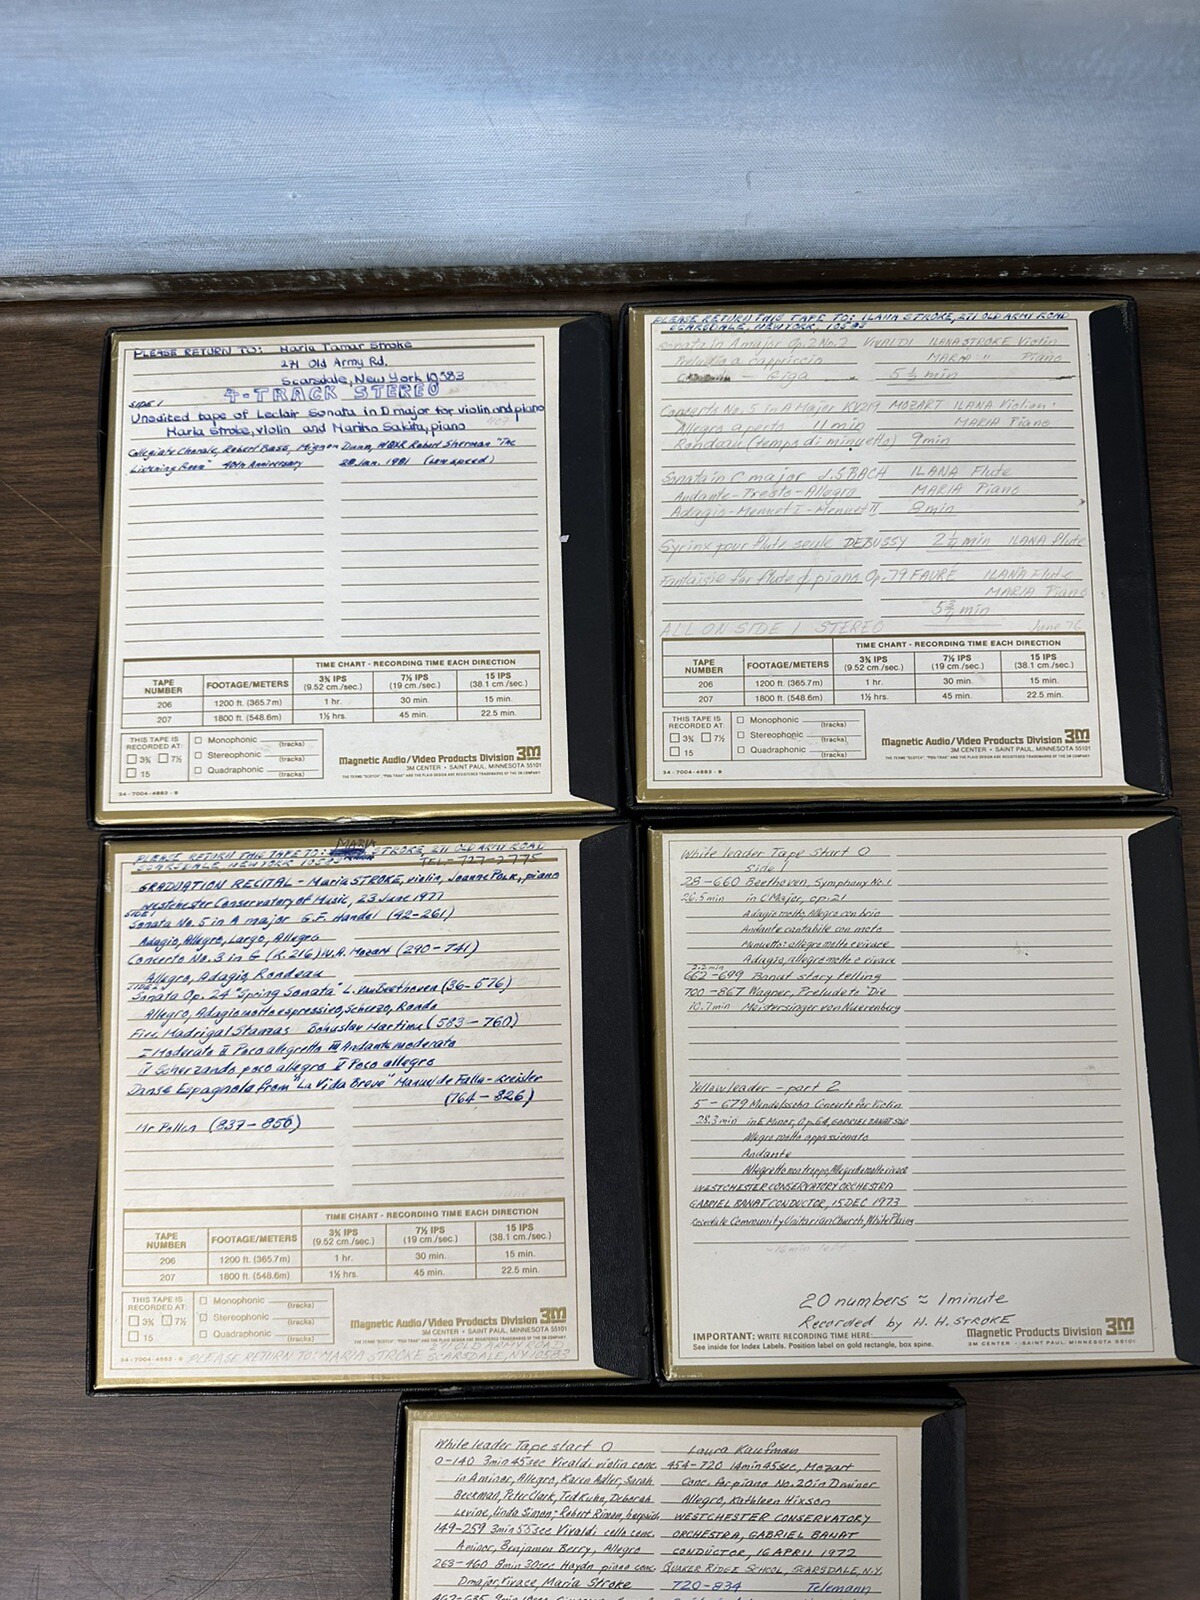 PLEASE RETURN TO: Maria Tamar Stroke
271 Old Army Rd.
Scarsdale, New York 10583
4-TRACK STEREO
SIDE 1
Unedited tape of Leclair Sonata in D major for violin and piano
Maria Stroke, violin and Nariko Sakita, piano
Collegiate Chorale, Robert Bass, Mignon Dunn, WQXR Robert Sherman "The
Listening Room" 40th Anniversary 28 Jan. 1981 (Low speed)
TIME CHART - RECORDING TIME EACH DIRECTION
TAPE NUMBER FOOTAGE/METERS 3¾ IPS (9.52 cm./sec.) 7½ IPS (19 cm./sec.) 15 IPS (38.1 cm./sec.)
206 1200 ft. (365.7m) 1 hr. 30 min. 15 min.
207 1800 ft. (548.6m) 1½ hrs. 45 min. 22.5 min.
THIS TAPE IS RECORDED AT:
3¾ 7½
15
Monophonic (tracks)
Stereophonic (tracks)
Quadraphonic (tracks)
Magnetic Audio/Video Products Division 3M
3M CENTER • SAINT PAUL, MINNESOTA 55101
34-7004-4883-9
PLEASE RETURN THIS TAPE TO: ILANA STROKE, 271 OLD ARMY ROAD
SCARSDALE, NEW YORK 10583
Sonata in A major Op. 2 No. 2 VIVALDI ILANA STROKE Violin
Preludio a capriccio MARIA " Piano
Giga 5½ min
Concerto No. 5 in A Major KV219 MOZART ILANA Violin
Allegro aperto 11 min MARIA Piano
Rondeau (tempo di minuetto) 9 min
Sonata in C major J.S. BACH ILANA Flute
Andante - Presto - Allegro MARIA Piano
Adagio - Menuet I - Menuet II 8 min
Syrinx pour flute seule DEBUSSY 2½ min ILANA flute
Fantaisie for flute & piano Op. 79 FAURE ILANA Flute
MARIA Piano
min
ALL ON SIDE 1 STEREO June 76
TIME CHART - RECORDING TIME EACH DIRECTION
TAPE NUMBER FOOTAGE/METERS 3¾ IPS (9.52 cm./sec.) 7½ IPS (19 cm./sec.) 15 IPS (38.1 cm./sec.)
206 1200 ft. (365.7m) 1 hr. 30 min. 15 min.
207 1800 ft. (548.6m) 1½ hrs. 45 min. 22.5 min.
THIS TAPE IS RECORDED AT:
3¾ 7½
15
Monophonic (tracks)
Stereophonic (tracks)
Quadraphonic (tracks)
Magnetic Audio/Video Products Division 3M
3M CENTER • SAINT PAUL, MINNESOTA 55101
34-7004-4883-9
PLEASE RETURN THIS TAPE TO: MARIA STROKE, 271 OLD ARMY ROAD
SCARSDALE, NEW YORK 10583 TEL = 727-2775
GRADUATION RECITAL - Maria STROKE, violin, Joanne POLK, piano
Westchester Conservatory of Music, 23 June 1977
SIDE 1
Sonata No. 5 in A major G.F. Handel (42-261)
Adagio, Allegro, Largo, Allegro
Concerto No. 3 in G (K. 216) W.A. Mozart (290-741)
Allegro, Adagio, Rondeau
SIDE 2
Sonata Op. 24 "Spring Sonata" L. van Beethoven (36-576)
Allegro, Adagio molto espressivo, Scherzo, Rondo
Five Madrigal Stanzas Bohuslav Martinu (583-760)
I Moderato II Poco allegretto III Andante moderato
IV Scherzando, poco allegro V Poco allegro
Danse Espagnola from "La Vida Breve" Manuel de Falla-Kreisler
(764-826)
Mr Pollen (837-856)
TIME CHART - RECORDING TIME EACH DIRECTION
TAPE NUMBER FOOTAGE/METERS 3¾ IPS (9.52 cm./sec.) 7½ IPS (19 cm./sec.) 15 IPS (38.1 cm./sec.)
206 1200 ft. (365.7m) 1 hr. 30 min. 15 min.
207 1800 ft. (548.6m) 1½ hrs. 45 min. 22.5 min.
THIS TAPE IS RECORDED AT:
3¾ 7½
15
Monophonic (tracks)
Stereophonic (tracks)
Quadraphonic (tracks)
Magnetic Audio/Video Products Division 3M
3M CENTER • SAINT PAUL, MINNESOTA 55101
34-7004-4883-9
271 OLD ARMY ROAD
PLEASE RETURN TO: MARIA STROKE SCARSDALE, NY 10583
White leader Tape Start 0
Side 1
28-660 Beethoven, Symphony No. 1
26.5 min in C Major, op. 21
Adagio molto, Allegro con brio
Andante cantabile con moto
Menuetto: allegro molto e vivace
Adagio, allegro molto e vivace
662-699 Banat story telling
700-867 Wagner, Prelude to "Die
10.7 min Meistersinger von Nuerenburg
Yellow leader - part 2
5-679 Mendelssohn Concerto for Violin
28.3 min in E Minor, Op. 64, GABRIEL BANAT solo
Allegro molto appassionato
Andante
Allegretto non troppo, Allegretto molto vivace
WESTCHESTER CONSERVATORY ORCHESTRA
GABRIEL BANAT CONDUCTOR, 15 DEC 1973
Rosedale Community Unitarian Church, White Plains
~16 min left
20 numbers ≈ 1 minute
Recorded by H. H. STROKE
IMPORTANT: WRITE RECORDING TIME HERE:
See inside for Index Labels. Position label on gold rectangle, box spine.
Magnetic Products Division 3M
3M CENTER • SAINT PAUL, MINNESOTA 55101
White leader Tape start 0
0-140 3min 45sec Vivaldi violin conc.
in A minor, Allegro, Karen Adler, Sarah
Beckman, Peter Clark, Ted Kuhn, Deborah
Levine, Linda Simon; Robert Riman, harpsich
149-259 3min 55sec Vivaldi cello conc.
A minor, Benjamen Berry, Allegro
263-460 8min 30sec Haydn piano conc.
D major, Vivace, Maria Stroke
Laura Kaufman
454-720 14min 45sec, Mozart
Conc. for piano No. 20 in D minor
Allegro, Kathleen Hixson
WESTCHESTER CONSERVATORY
ORCHESTRA, GABRIEL BANAT
CONDUCTOR, 16 APRIL 1972
QUAKER RIDGE SCHOOL, SCARSDALE, N.Y.
720-834 Telemann